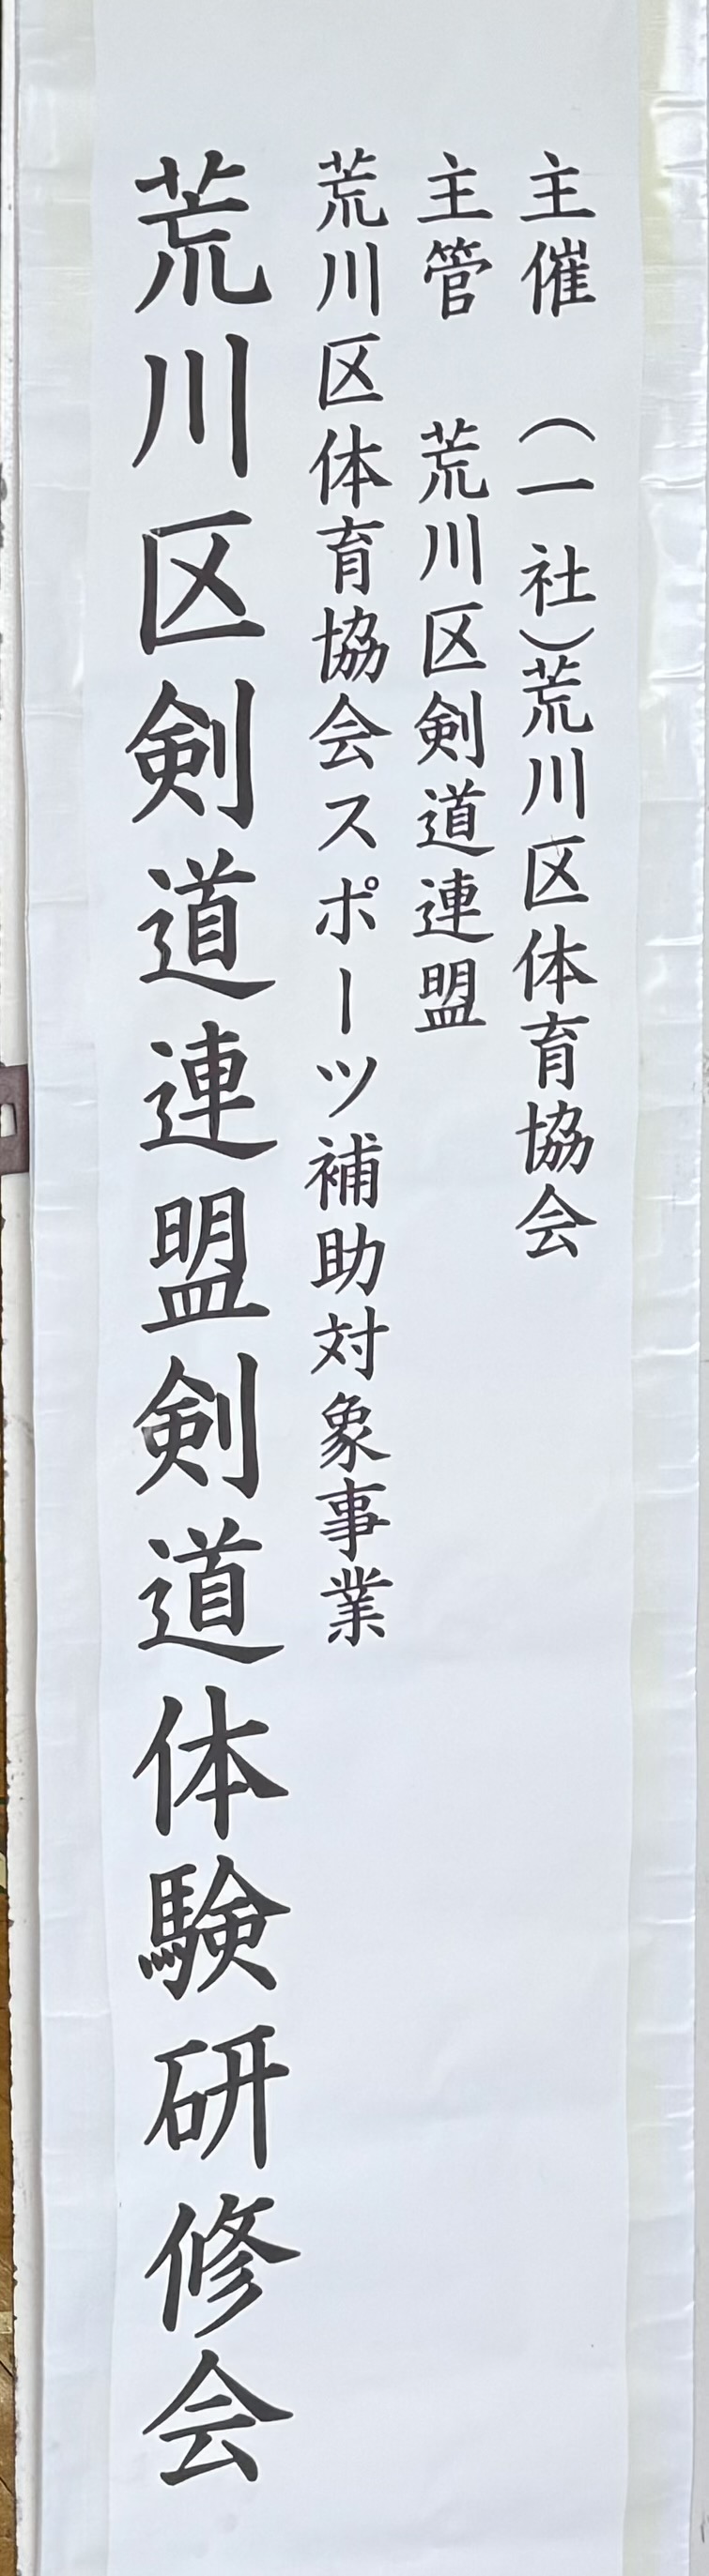 主催 (一社)荒川区体育協会
主管 荒川区剣道連盟
荒川区体育協会スポーツ補助対象事業
荒川区剣道連盟剣道体験研修会